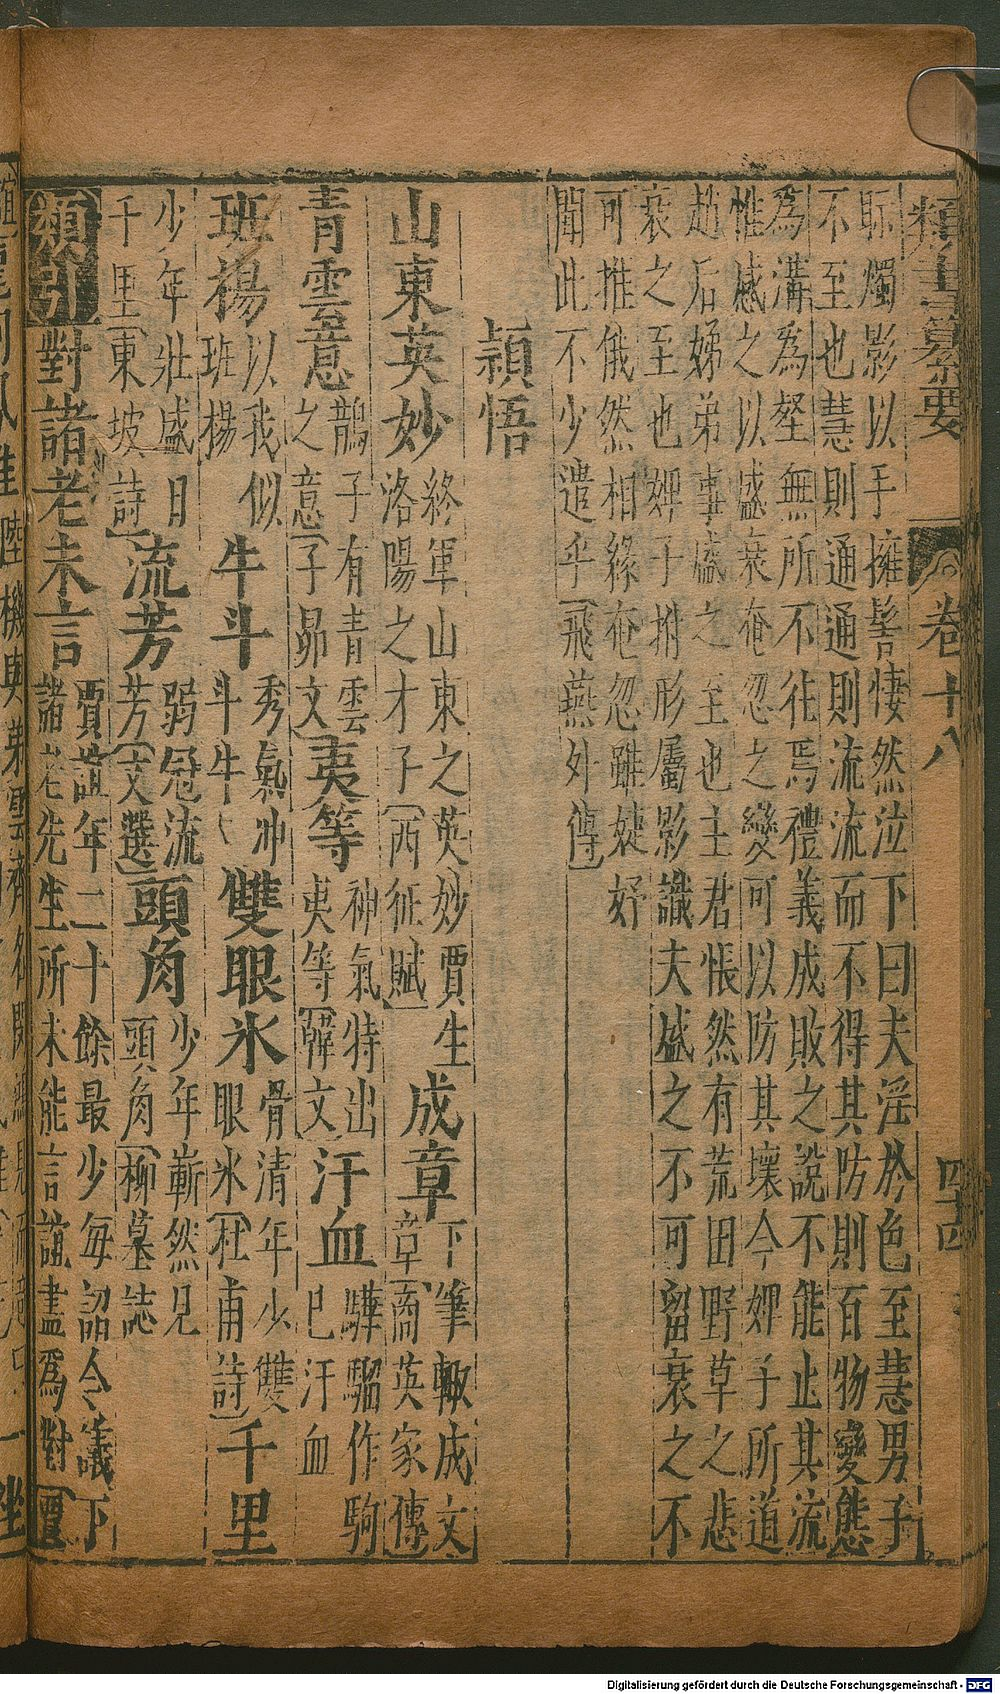 類書纂要 卷十八 四十四
眎燭影以手擁髻悽然泣下曰夫淫於色至慧男子
不至也慧則通通則流流而不得其防則百物變態
為溝為壑無所不往焉禮義成敗之說不能止其流
惟慼之以盛衰奄忽之變可以防其壞今婢子所道
趙后娣弟事盛之至也主君悵然有荒田野草之悲
衰之至也婢子拊形屬影識夫盛之不可留衰之不
可推俄然相緣奄忽雖婕妤
聞此不少遣乎〔飛燕外傳〕
頴悟
山東英妙 終軍山東之英妙賈生洛陽之才子〔西征賦〕 成章 下筆輙成文章〔商英家傳〕
青雲意 鶻子有青雲之意〔子昴文〕 夷等 神氣特出夷等〔韓文〕 汗血 驊騮作駒已汗血
班楊 以我似班楊 牛斗 秀氣冲斗牛 雙眼氷 骨清年少雙眼氷〔杜甫詩〕 千里
少年壯盛日千里〔東坡詩〕 流芳 弱冠流芳〔文選〕 頭角 少年嶄然見頭角〔柳墓誌
類引 對諸老未言 賈誼年二十餘最少每詔令議下諸老先生所未能言誼盡爲對
Digitalisierung gefördert durch die Deutsche Forschungsgemeinschaft - DFG